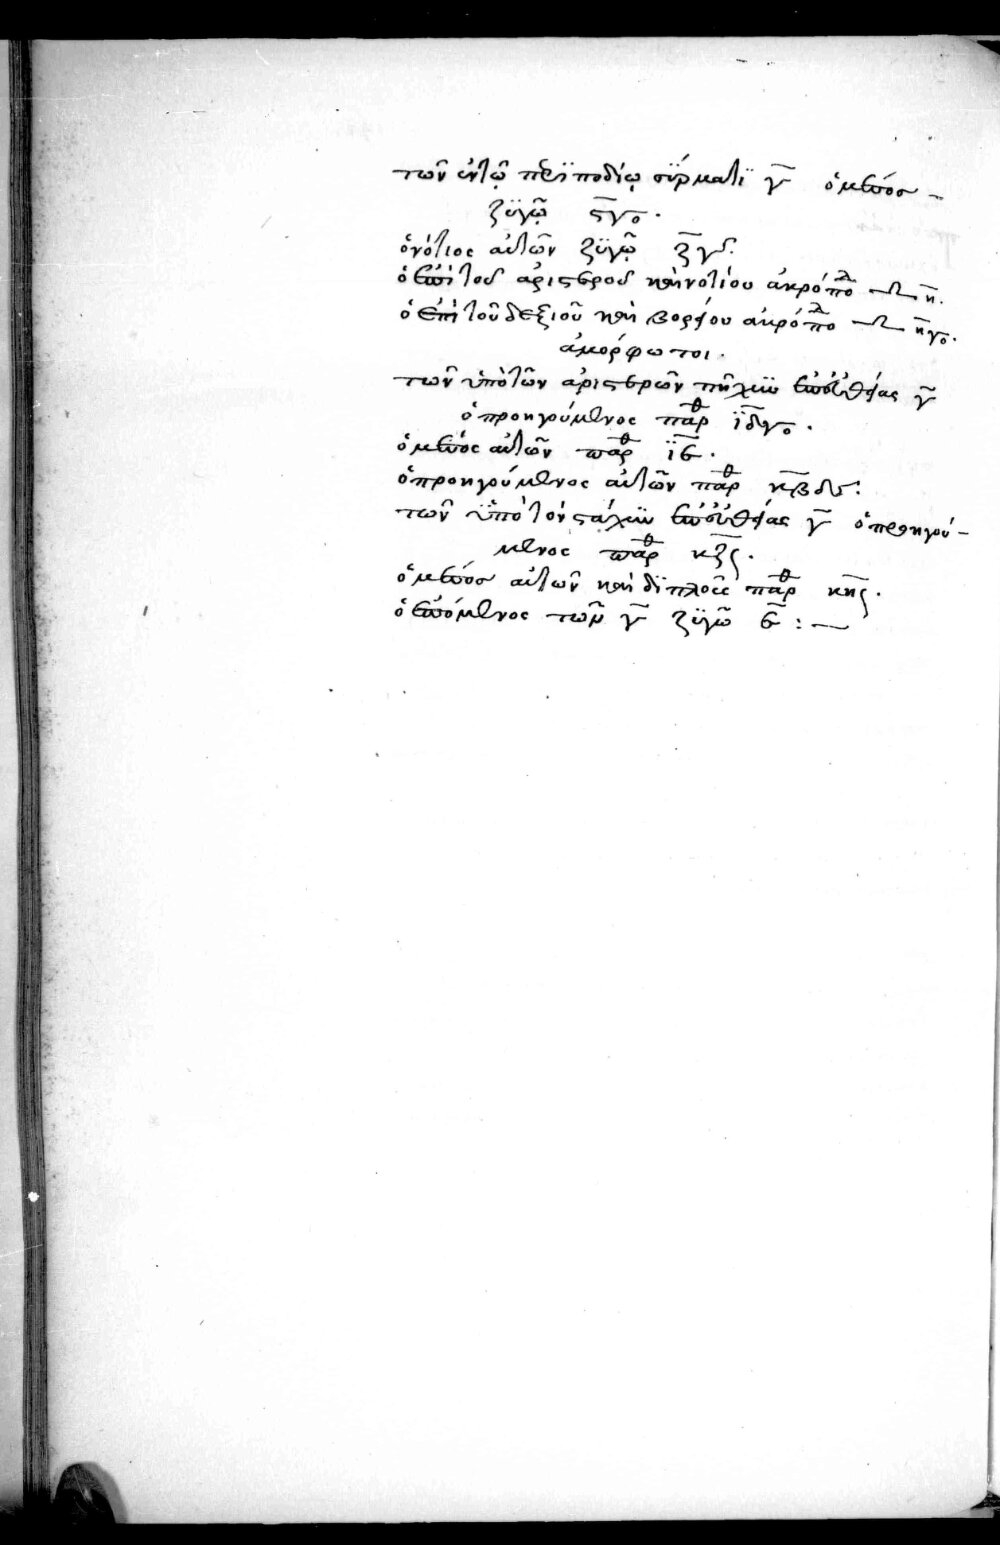 τῶν ἐν τῷ περιποδίῳ σύρματι γ̅ ὁ μέσος
ζυγῷ ϛ̅ γο.
ὁ νότιος αὐτῶν ζυγῷ ζ̅ γʹ.
ὁ ἐπὶ τοῦ ἀριστεροῦ καὶ νοτίου ἀκρόπο η̅.
ὁ ἐπὶ τοῦ δεξιοῦ καὶ βορείου ἀκρόπο η̅ γο.
ἀμόρφωτοι.
τῶν ὑπὸ τὸν ἀριστερὸν πῆχυν ἐπ᾽ εὐθείας γ̅
ὁ προηγούμενος παρθ ι̅δ̅ γο.
ὁ μέσος αὐτῶν παρθ
ὁ προηγούμενος αὐτῶν παρθ
τῶν ὑπὸ τὸν στάχυν ἐπ᾽ εὐθείας γ̅ ὁ προηγού-
μενος παρθ κ̅ζ̅ ϛ.
ὁ μέσος αὐτῶν καὶ διπλοῦς παρθ κ̅η̅ ϛ.
ὁ ἑπόμενος τῶν γ̅ ζυγῷ